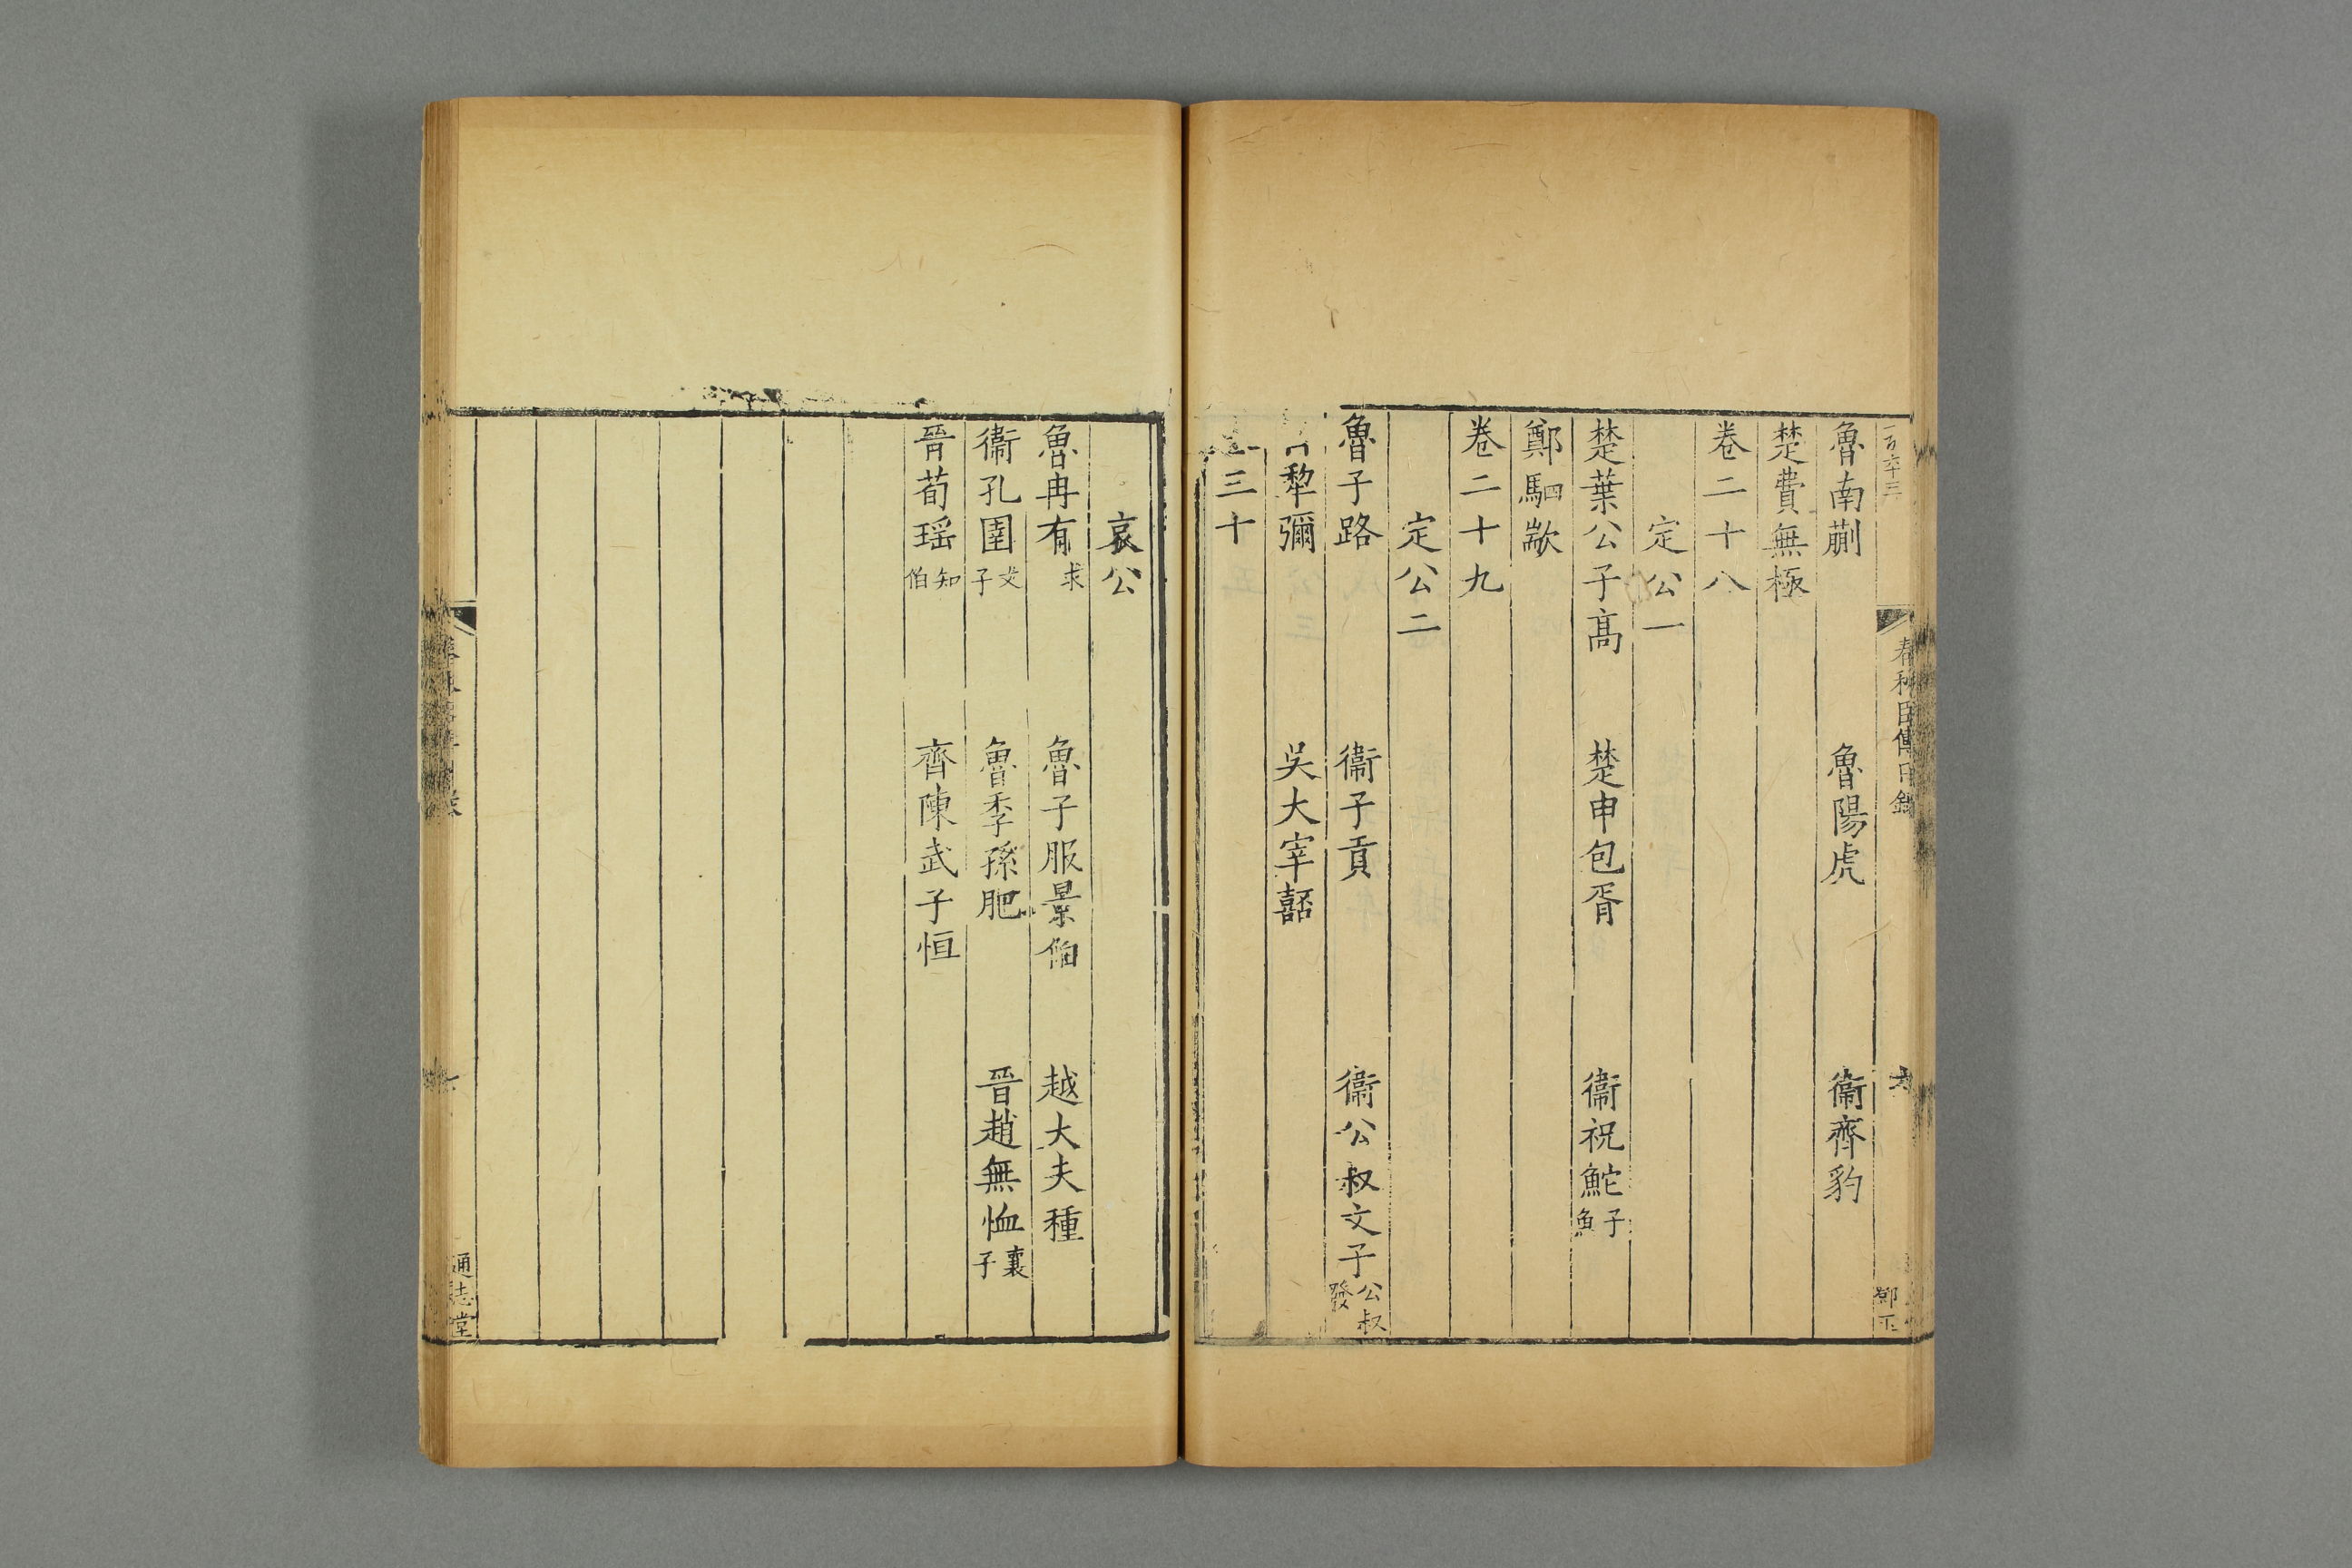 一百六十三
春秋臣傳目錄
六
鄧玉
魯南蒯 魯陽虎 衞齊豹
楚費無極
卷二十八
定公一
楚葉公子高 楚申包胥 衞祝鮀子魚
鄭駟歂
卷二十九
定公二
魯子路 衞子貢 衞公叔文子公叔發
犂彌 吳大宰嚭
三十
哀公
魯冉有求 魯子服景伯 越大夫種
衞孔圉文子 魯季孫肥 晉趙無恤襄子
晉荀瑶知伯 齊陳武子恒
通志堂